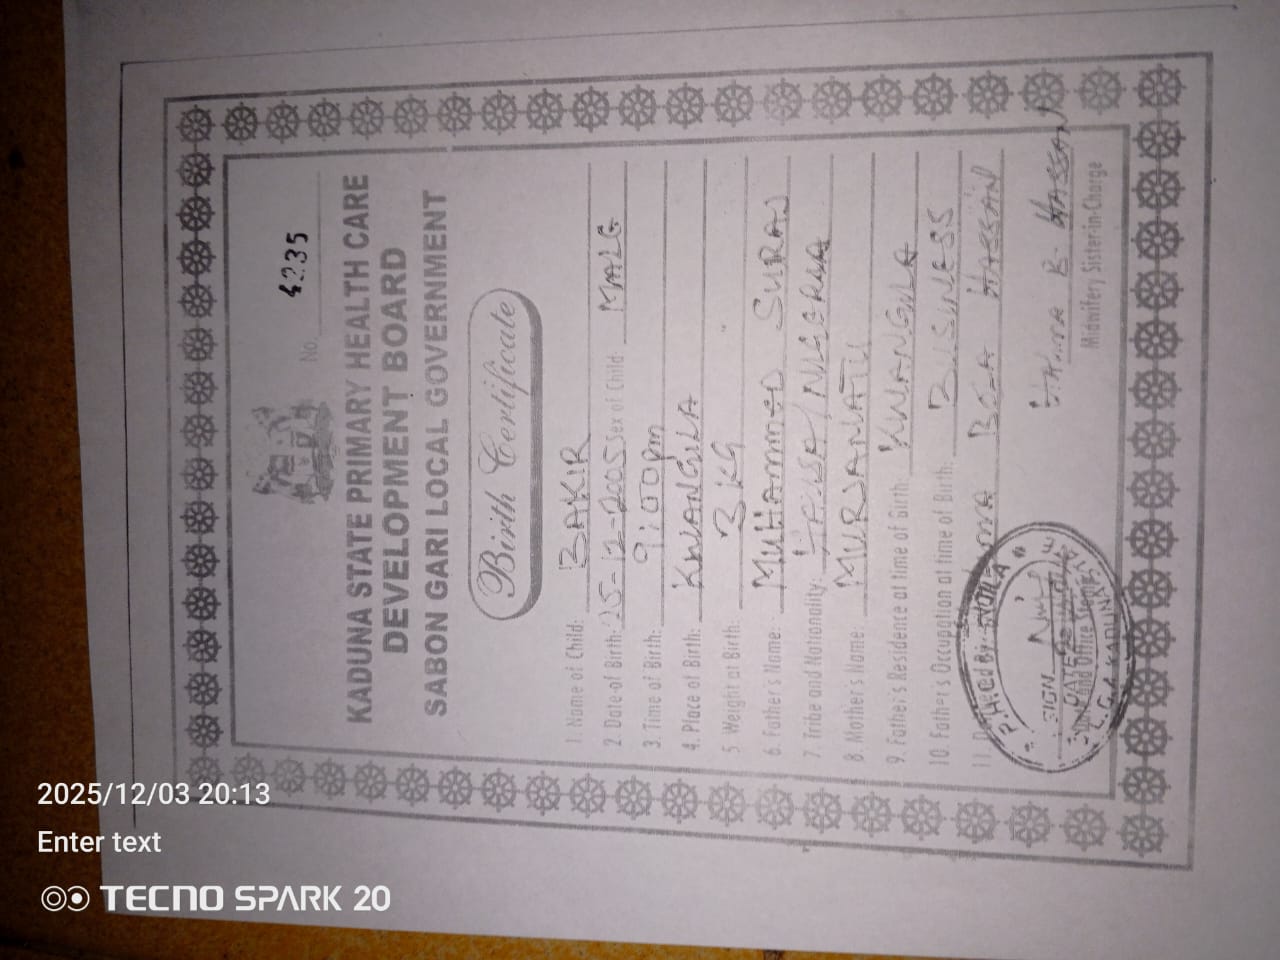 No. 4235
KADUNA STATE PRIMARY HEALTH CARE
DEVELOPMENT BOARD
SABON GARI LOCAL GOVERNMENT
Birth Certificate
1. Name of Child: BAKIR
2 Date of Birth: 25-12-2005 Sex of Child: MALE
3. Time of Birth: 9:00pm
4. Place of Birth: KWANGILA
5 Weight at Birth: 3KG
6. Father's Name: MUHAMMED SURAJ
7. Tribe and Nationality: HAUSA/NIGERIA
8. Mother's Name: MURJANATU
9. Father's Residence at time of Birth: KWANGILA
10. Father's Occupation at time of Birth: BUSINESS
11. HASSAN
B. HASSAN
Midwifery Sister-in-Charge
SIGN
DATE
L.G.A KADUNA
2025/12/03 20:13
Enter text
TECNO SPARK 20